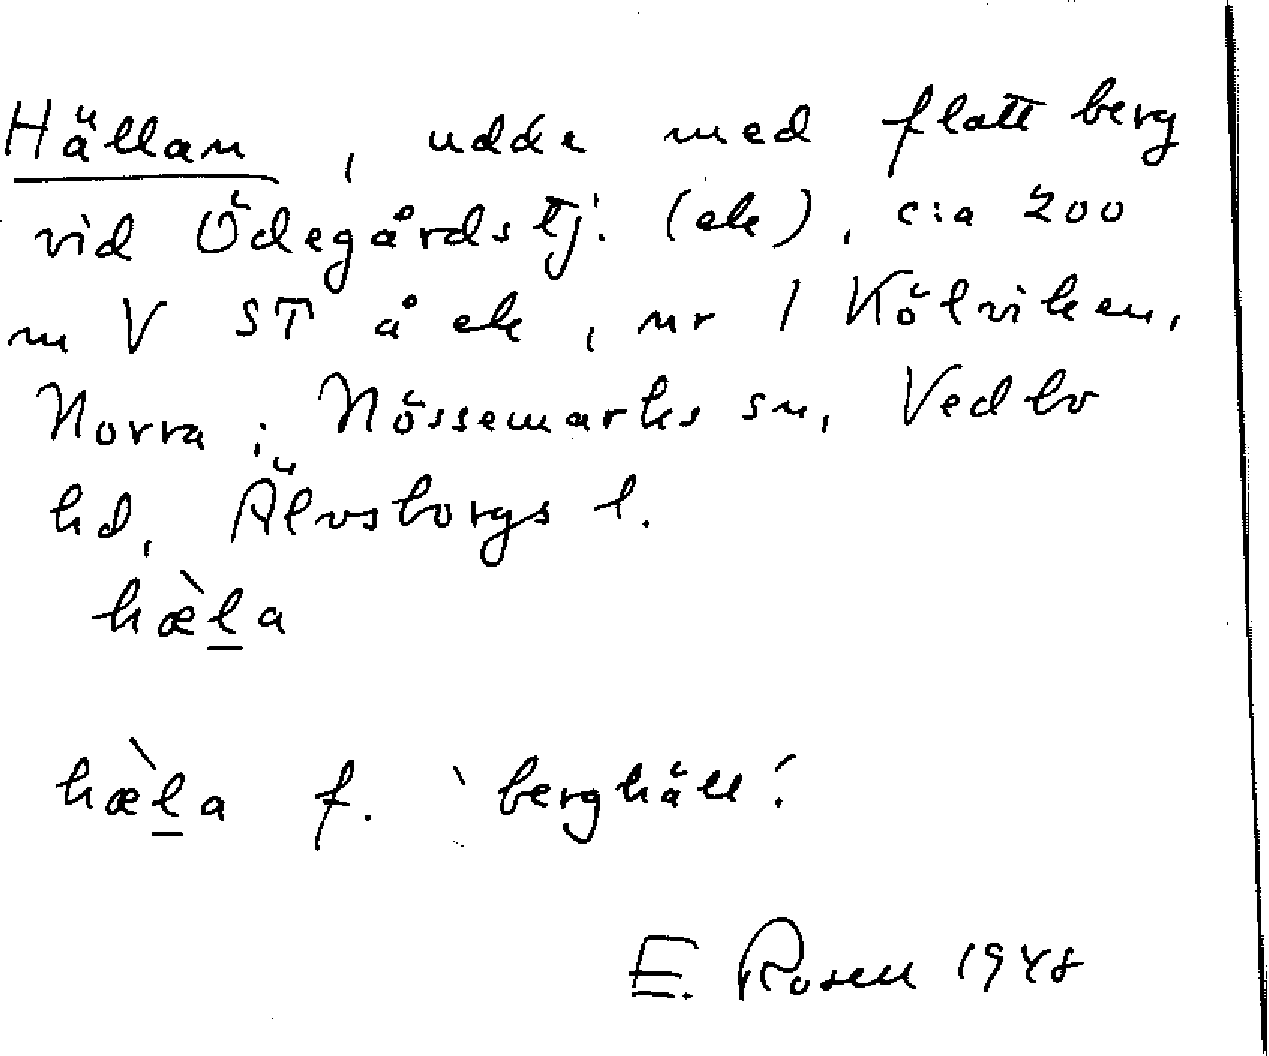 Hällan, udde med flatt berg
vid Ödegårdstj. (ek), c:a 200
m V ST å ek, nr 1 Kölviken,
Norra; Nössemarks sn, Vedbo
hd, Älvsborgs l.
hæ̀l̲a
hæ̀l̲a f. `berghäll´.
E. Rosen 1948